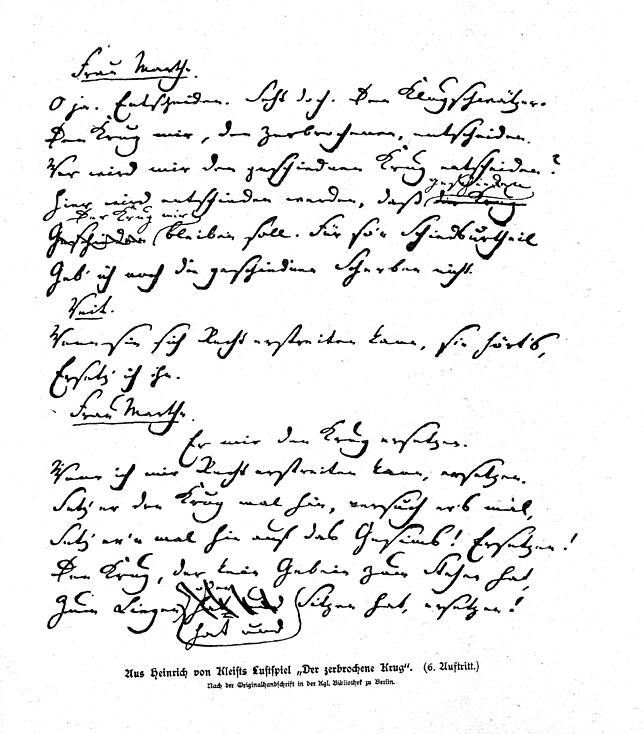 Frau Marthe.
O ja. Entscheiden. Seht doch. Den Klugschwätzer.
Den Krug mir, den zerbrochenen, entscheiden.
Wer wird mir den geschiednen Krug entscheiden?
Hier wird entschieden werden, daß geschieden der Krug
Der Krug mir
Geschieden bleiben soll. Für so'n Schiedsurtheil
Geb' ich noch die geschiednen Scherben nicht.
Veit.
Wenn sie sich Recht erstreiten kann, sie hört's,
Ersetz ich ihn.
Frau Marthe.
Er mir den Krug ersetzen.
Wenn ich mir Recht erstreiten kann, ersetzen.
Setz' er den Krug mal hin, versuch er's mal,
Setz' er'n mal hin auf das Gesims! Ersetzen!
Den Krug, der kein Gebein zum Stehen hat,
Zum Liegen hat und Sitzen hat, ersetzen!
hat und
Aus Heinrich von Kleists Lustspiel „Der zerbrochene Krug“. (6. Auftritt.)
Nach der Originalhandschrift in der Kgl. Bibliothek zu Berlin.